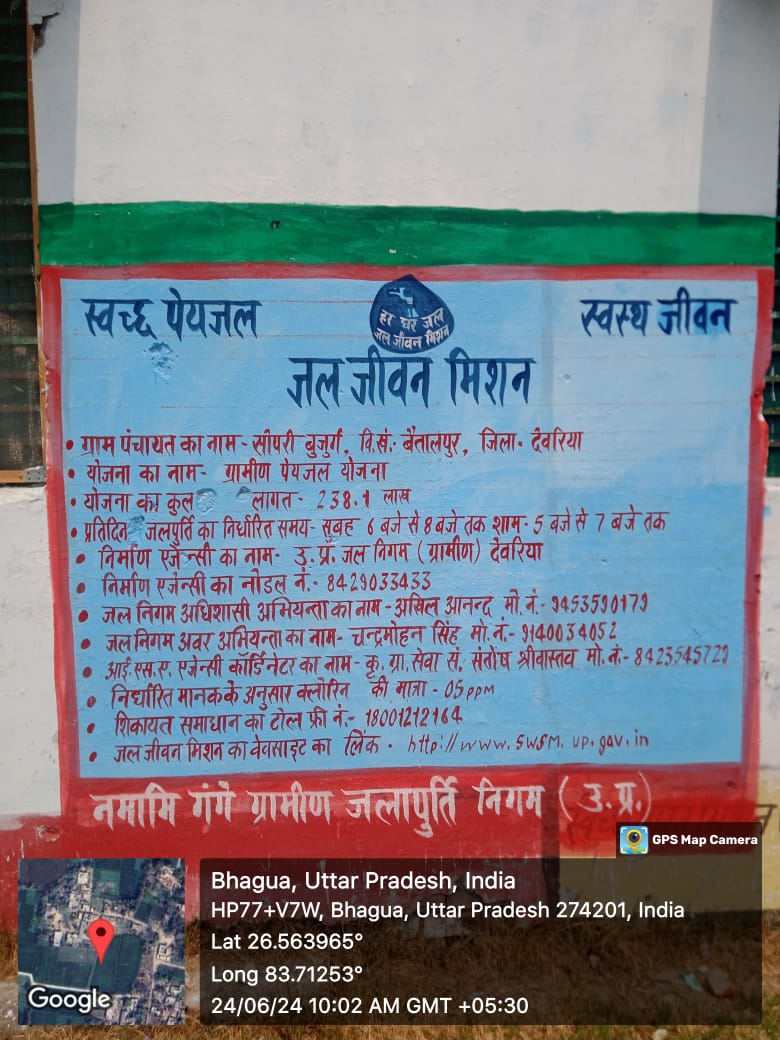 स्वच्छ पेयजल
हर घर जल
जल जीवन मिशन
स्वस्थ जीवन
जल जीवन मिशन
• ग्राम पंचायत का नाम - सीपरी बुजुर्ग, वि.सं.- बैतालपुर, जिला- देवरिया
• योजना का नाम- ग्रामीण पेयजल योजना
• योजना का कुल लागत - 238.1 लाख
• प्रतिदिन जलपुर्ति का निर्धारित समय- सुबह 6 बजे से 8 बजे तक शाम- 5 बजे से 7 बजे तक
• निर्माण एजेन्सी का नाम- उ.प्र. जल निगम (ग्रामीण) देवरिया
• निर्माण एजेन्सी का नोडल नं.- 8429033433
• जल निगम अधिशासी अभियन्ता का नाम - अखिल आनन्द मो.नं.- 9453590179
• जल निगम अवर अभियन्ता का नाम- चन्द्रमोहन सिंह मो.नं.- 9140034052
• आई.एस.ए. एजेन्सी कॉर्डिनेटर का नाम - कृ. ग्रा. सेवा सं. संतोष श्रीवास्तव मो.नं.- 8423545729
• निर्धारित मानक के अनुसार क्लोरिन की मात्रा - 05 ppm
• शिकायत समाधान का टोल फ्री नं.- 18001212164
• जल जीवन मिशन का वेवसाइट का लिंक - http://www.swsm.up.gov.in
नमामि गंगे ग्रामीण जलापुर्ति निगम (उ.प्र.)
GPS Map Camera
Bhagua, Uttar Pradesh, India
HP77+V7W, Bhagua, Uttar Pradesh 274201, India
Lat 26.563965°
Long 83.71253°
24/06/24 10:02 AM GMT +05:30
Google